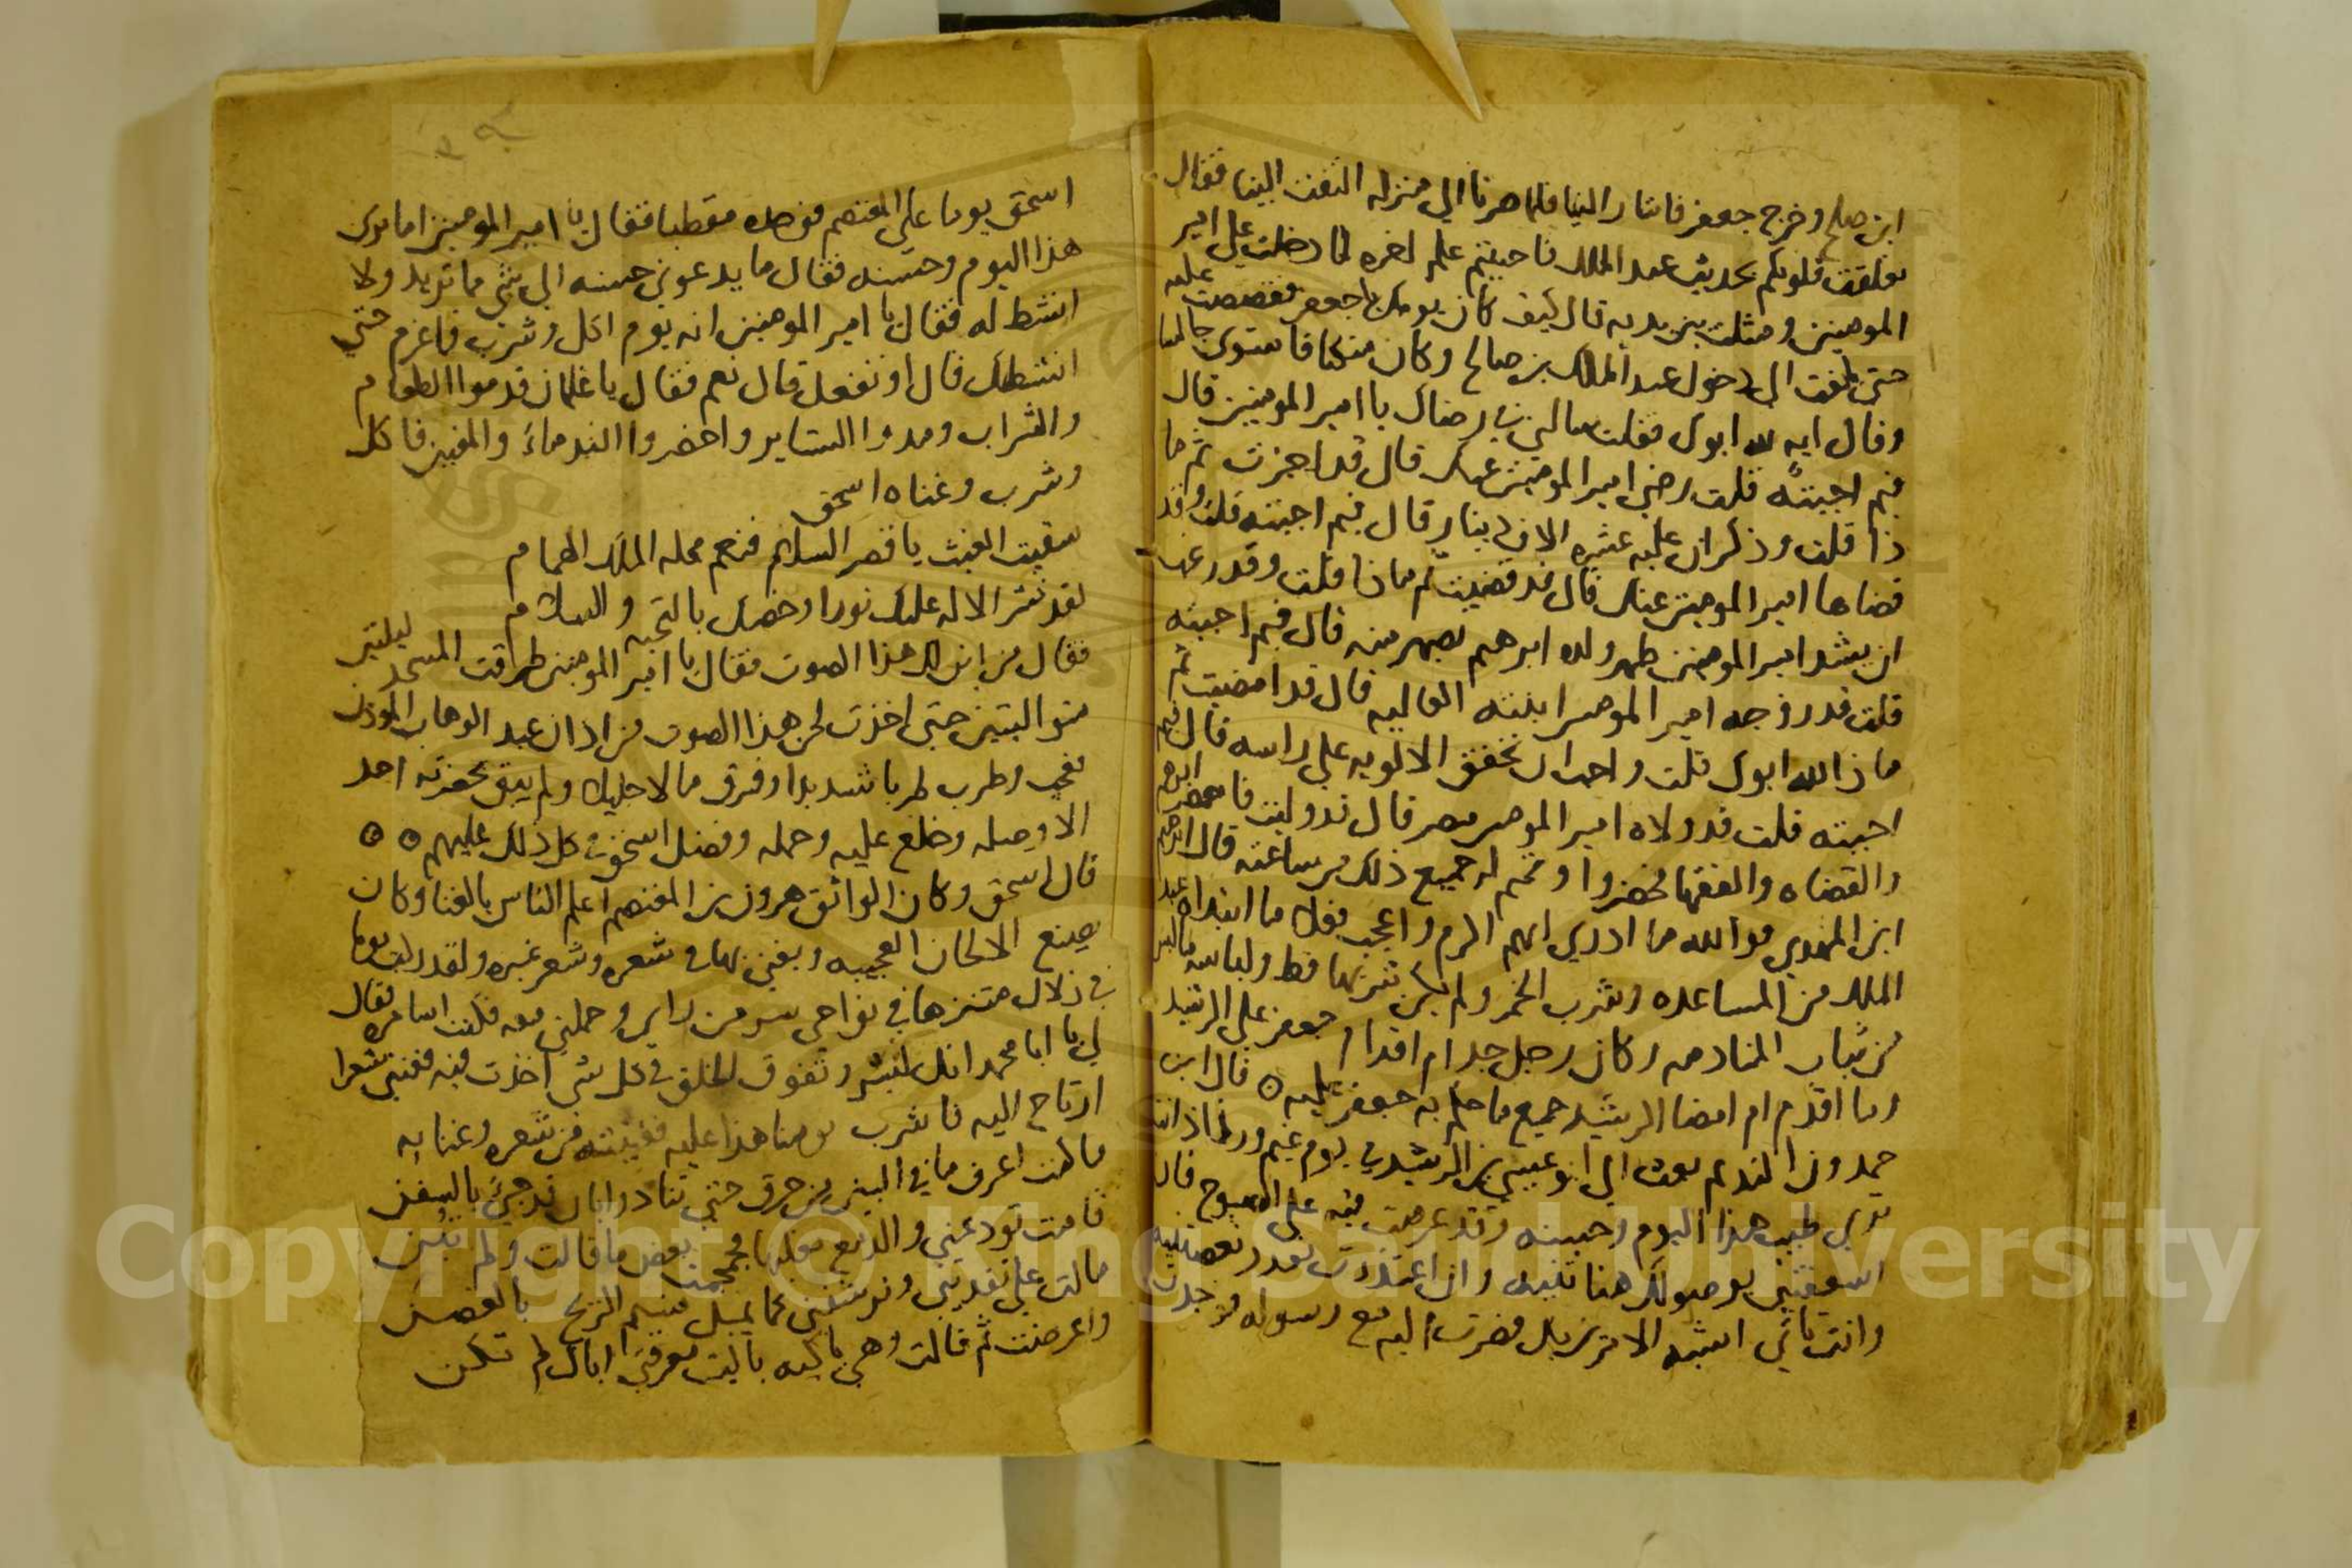 ابن صلح وخرج جعفر فاشار الينا فلما صرنا الي منزله التفت الينا فقال
تعلقت قلوبكم بحديث عبد الملك فاحببتم علم اخره لما دخلت علي امير
المومنين ومثلت بين يديه قال كيف كان يومك يا جعفر فقصصت عليه
حتى بلغت الى دخول عبد الملك بن صالح وكان متكيا فاستوى جالسا
وقال ايه لله ابوك فقلت سالني في رضاك يا امير المومنين قال
فبم اجبته قلت رضي امير المومنين عنك قال قد اجزت ثم ما
ذا قلت وذكر ان عليه عشرة الاف دينار قال فبم اجبته قلت وقد
قضاها امير المومنين عنك قال قد قضيت ثم ماذا قلت وقد رغب
ان يشد امير المومنين ظهر ولده ابرهيم بصهر منه قال فبم اجبته
قلت قد زوجه امير المومنين ابنته العاليه قال قد امضيت ثم
ماذا لله ابوك قلت واحب ان تخفق الالويه علي راسه قال فبم
اجبته قلت قد ولاه امير المومنين مصر قال قد وليت فاحضر ابرهيم
والقضاه والفقها فحضروا وتمم له جميع ذلك من ساعته قال ابرهيم
ابن المهدي فوالله ما ادري ايهم اكرم واعجب فعلا ما ابتداه عبد
الملك من المساعده وشرب الخمر ولم يكن شربها قط ولباسه ما لبس
من ثياب المنادمه وكان رجل جد ام اقدام جعفر علي الرشيد
وما اقدم ام امضا الرشيد جميع ما حكم به جعفر عليه ه قال ابن
حمدون النديم بعث الي ابو عيسي بن الرشيد في يوم غيم ورذاذ انت
تري طيب هذا اليوم وحسنه وقد عزمت فيه علي الصبوح فان
اسعفتني بوصولك هنا تنيه وان اعتذرت بعذر نغصتنيه
وانت باي اشبه الا ترى بل فضرت اليه مع رسوله فوجدت
اسحق يوما علي المعتصم فوجده مقطبا فقال يا امير المومنين اما ترى
هذا اليوم وحسنه فقال ما يدعوني حسنه الي شي مما تريد ولا
انشط له فقال يا امير المومنين انه يوم اكل وشرب فاعزم حتي
انشطك قال او تفعل قال نعم فقال يا غلمان قدموا الطعام
والشراب ومدوا الستاير واحضروا الندماء والمغنين فاكل
وشرب وغناه اسحق
سقيت الغيث يا قصر السلام فنعم محله الملك الهمام
لقد نشر الاله عليك نورا وخصك بالتحيه والسلام
فقال من اين لك هذا الصوت فقال يا امير المومنين طرقت المسجد ليلتين
متواليتين حتي اخذت لحن هذا الصوت من اذان عبد الوهاب الموذن
فعجب وطرب طربا شديدا وفرق مالا جليلا ولم يبق بحضرته احد
الا وصله وخلع عليه وحمله وفضل اسحق في كل ذلك عليهم ه ه
قال اسحق وكان الواثق هرون بن المعتصم اعلم الناس بالغنا وكان
يصنع الالحان العجيبه ويغني بها في شعره وشعر غيره ولقد ركب يوما
في زلال متنزها في نواحي سر من راي وحملني معه فلقت اسامره فقال
لي يا ابا محمد انك لتبشر وتفوق الخلق في كل شي اخذت فيه فغنني شعرا
ارتاح اليه فاشرب يومنا هذا عليه فغنيته من شعره وغنا به
ما كنت اعرف ما في البين من حرق حتي تنادوا بان قد جي بالسفن
قامت تودعني والدمع يغلبها فجمجمت بعض ما قالت ولم تبن
مالت علي تفديني وترشفني كما يميل نسيم الريح بالغصن
واعرضت ثم قالت وهي باكيه يا ليت معرفتي اياك لم تكن